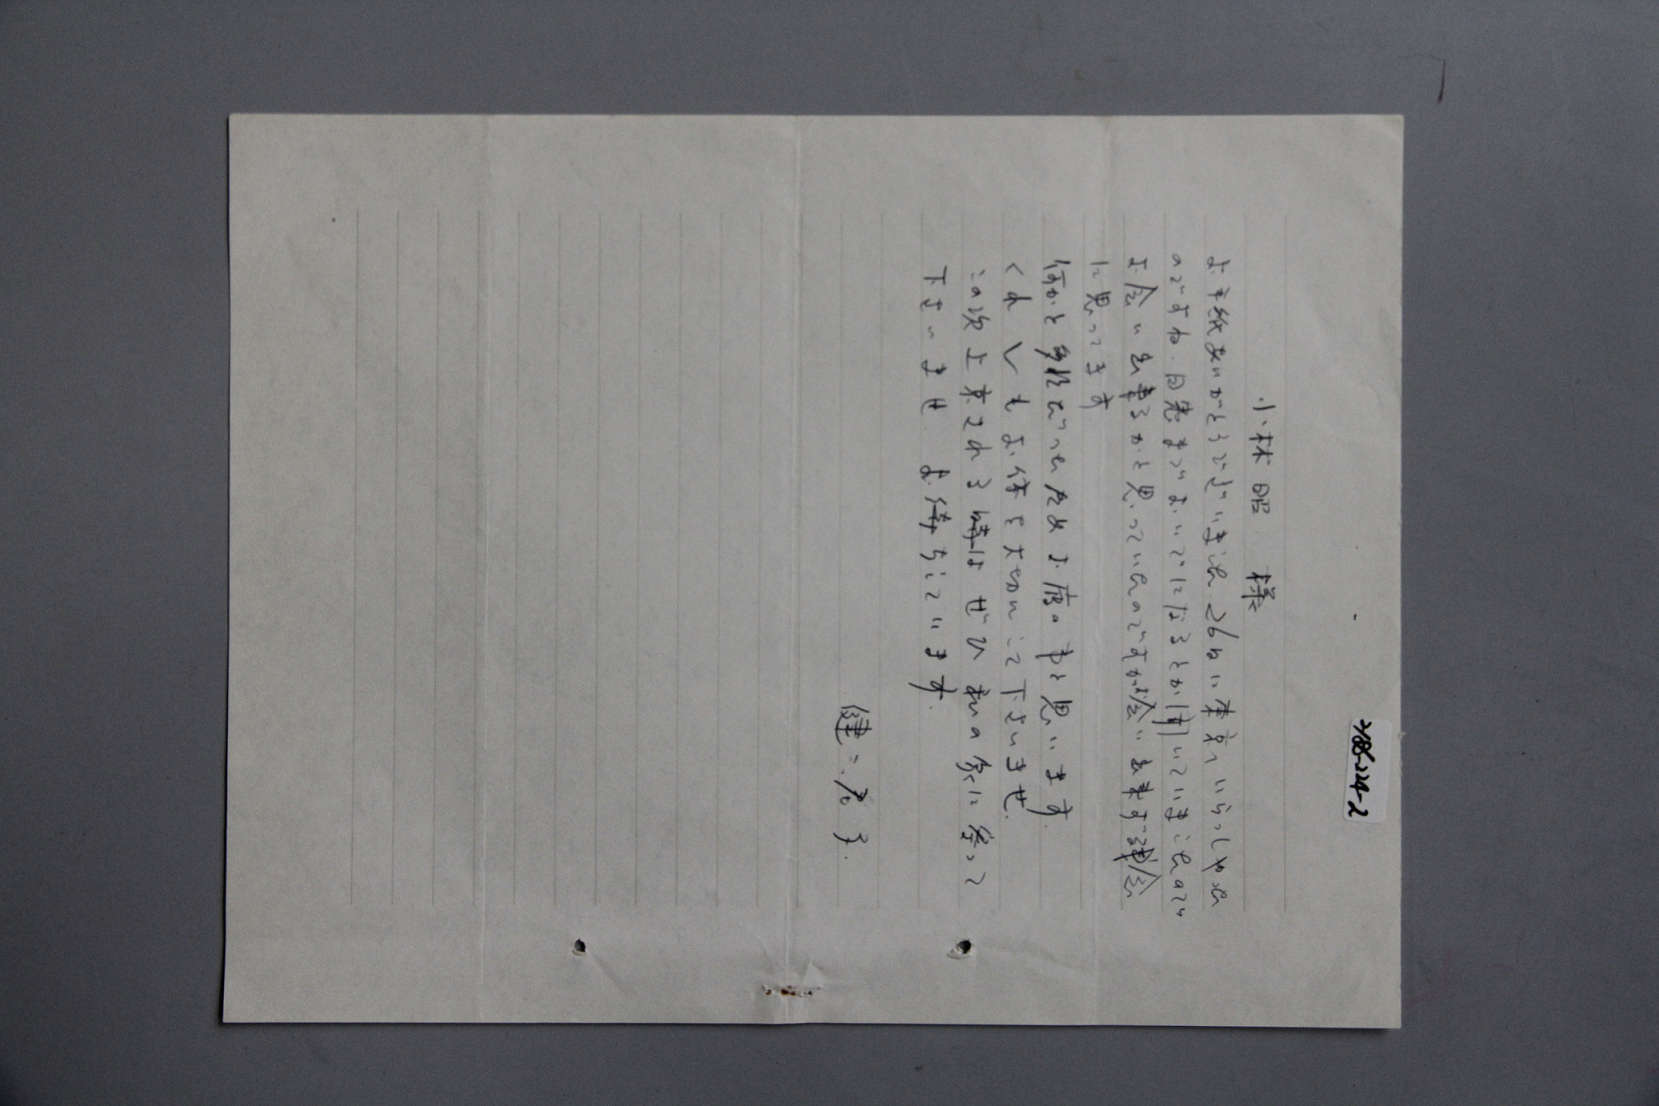 小林昭 様
お手紙ありがとうございました 26日に東京へいらっしゃった
のですね。日悲まがおいでになるとか聞いていましたので
お会い出来るかと思っていたのですがお会い出来ず残念
に思ってます
何かと多忙でいられお疲れの事と思います
くれぐれもお体を大切にして下さいませ.
この次上京される時はぜひ私の家に寄って
下さいませ お待ちしています.
健二
2186-224-2